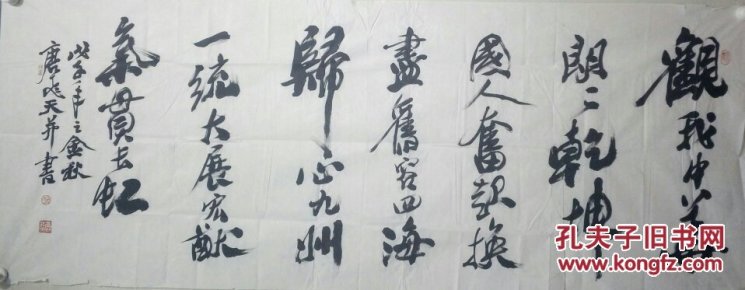 觀我中华
朗々乾坤
國人奮起換
盡舊容四海
歸心九州
一統大展宏猷
氣貫長虹
戊子年之金秋
唐 天并書
孔夫子旧书网
www.kongfz.com